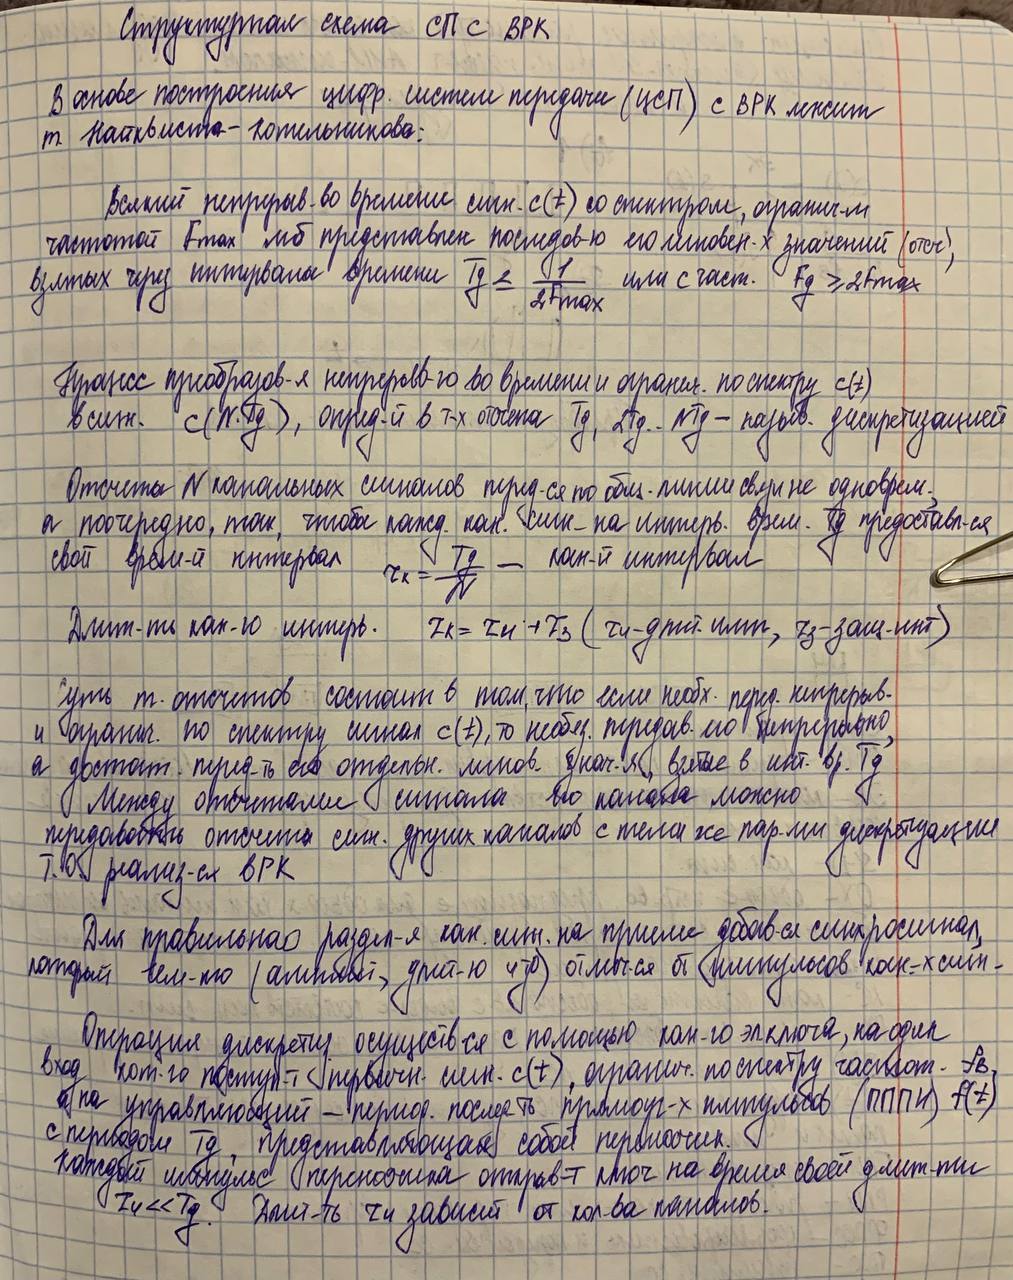 Структурная схема СП с ВРК
В основе построения цифр. систем передачи (ЦСП) с ВРК лежит
т. Найквиста-Котельникова:
Всякий непрерыв-во времени сигн. c(t) со спектром, огранич-м
частотой Fmax мб представлен последов-ю его мгновен-х значений (отсч),
взятых через интервалы времени Tg ≤ 1/2Fmax или с част. Fg ≥ 2Fmax
Процесс преобразов-я непрерывн-го во времени и огранич. по спектру c(t)
в сигн. c(N·Tg), опред-й в т-х отсчета Tg, 2Tg.. NTg – назыв. дискретизацией
Отсчеты N канальных сигналов перед-ся по общ. линии связи не одноврем.,
а поочередно, так, чтобы кажд. кан. сигн– на интерв. врем. Tg предоставл-ся
свой врем-й интервал τк = Tg/N – кан-й интервал
Длит-ть кан-го интерв. τк = τи + τз (τи-длит. имп, τз-защ-инт)
Суть т. отсчетов состоит в том, что если необх. перед. непрерыв-
и огранич. по спектру сигнал c(t), то необяз. передав. его непрерывно,
а достат. перед-ть его отдельн. мгнов. знач-я, взятые в инт. вр. Tg
Между отсчетами сигнала 1го канала можно
передавать отсчеты сигн. других каналов с теми же пар-ми дискретизации
Т.О. реализ-ся ВРК
Для правильнаo раздел-я кан. сигн. на приеме добав-ся синхросигнал,
который чем-то (амплит, длит-ю итд) отлич-ся от импульсов кан-х сигн-
Операция дискретиз осуществ-ся с помощью кан-го эл.ключа, на один
вход кот-го поступ-т первичн. сигн. c(t), огранич. по спектру частот. fв,
а на управляющий – период. послед-ть прямоуг-х импульсов (ПППИ) f(t)
с периодом Tg, представляющая собой переносчик.
Каждый импульс переносчика открыв-т ключ на время своей длит-ти
τи << Tg. Длит-ть τи зависит от кол-ва каналов.